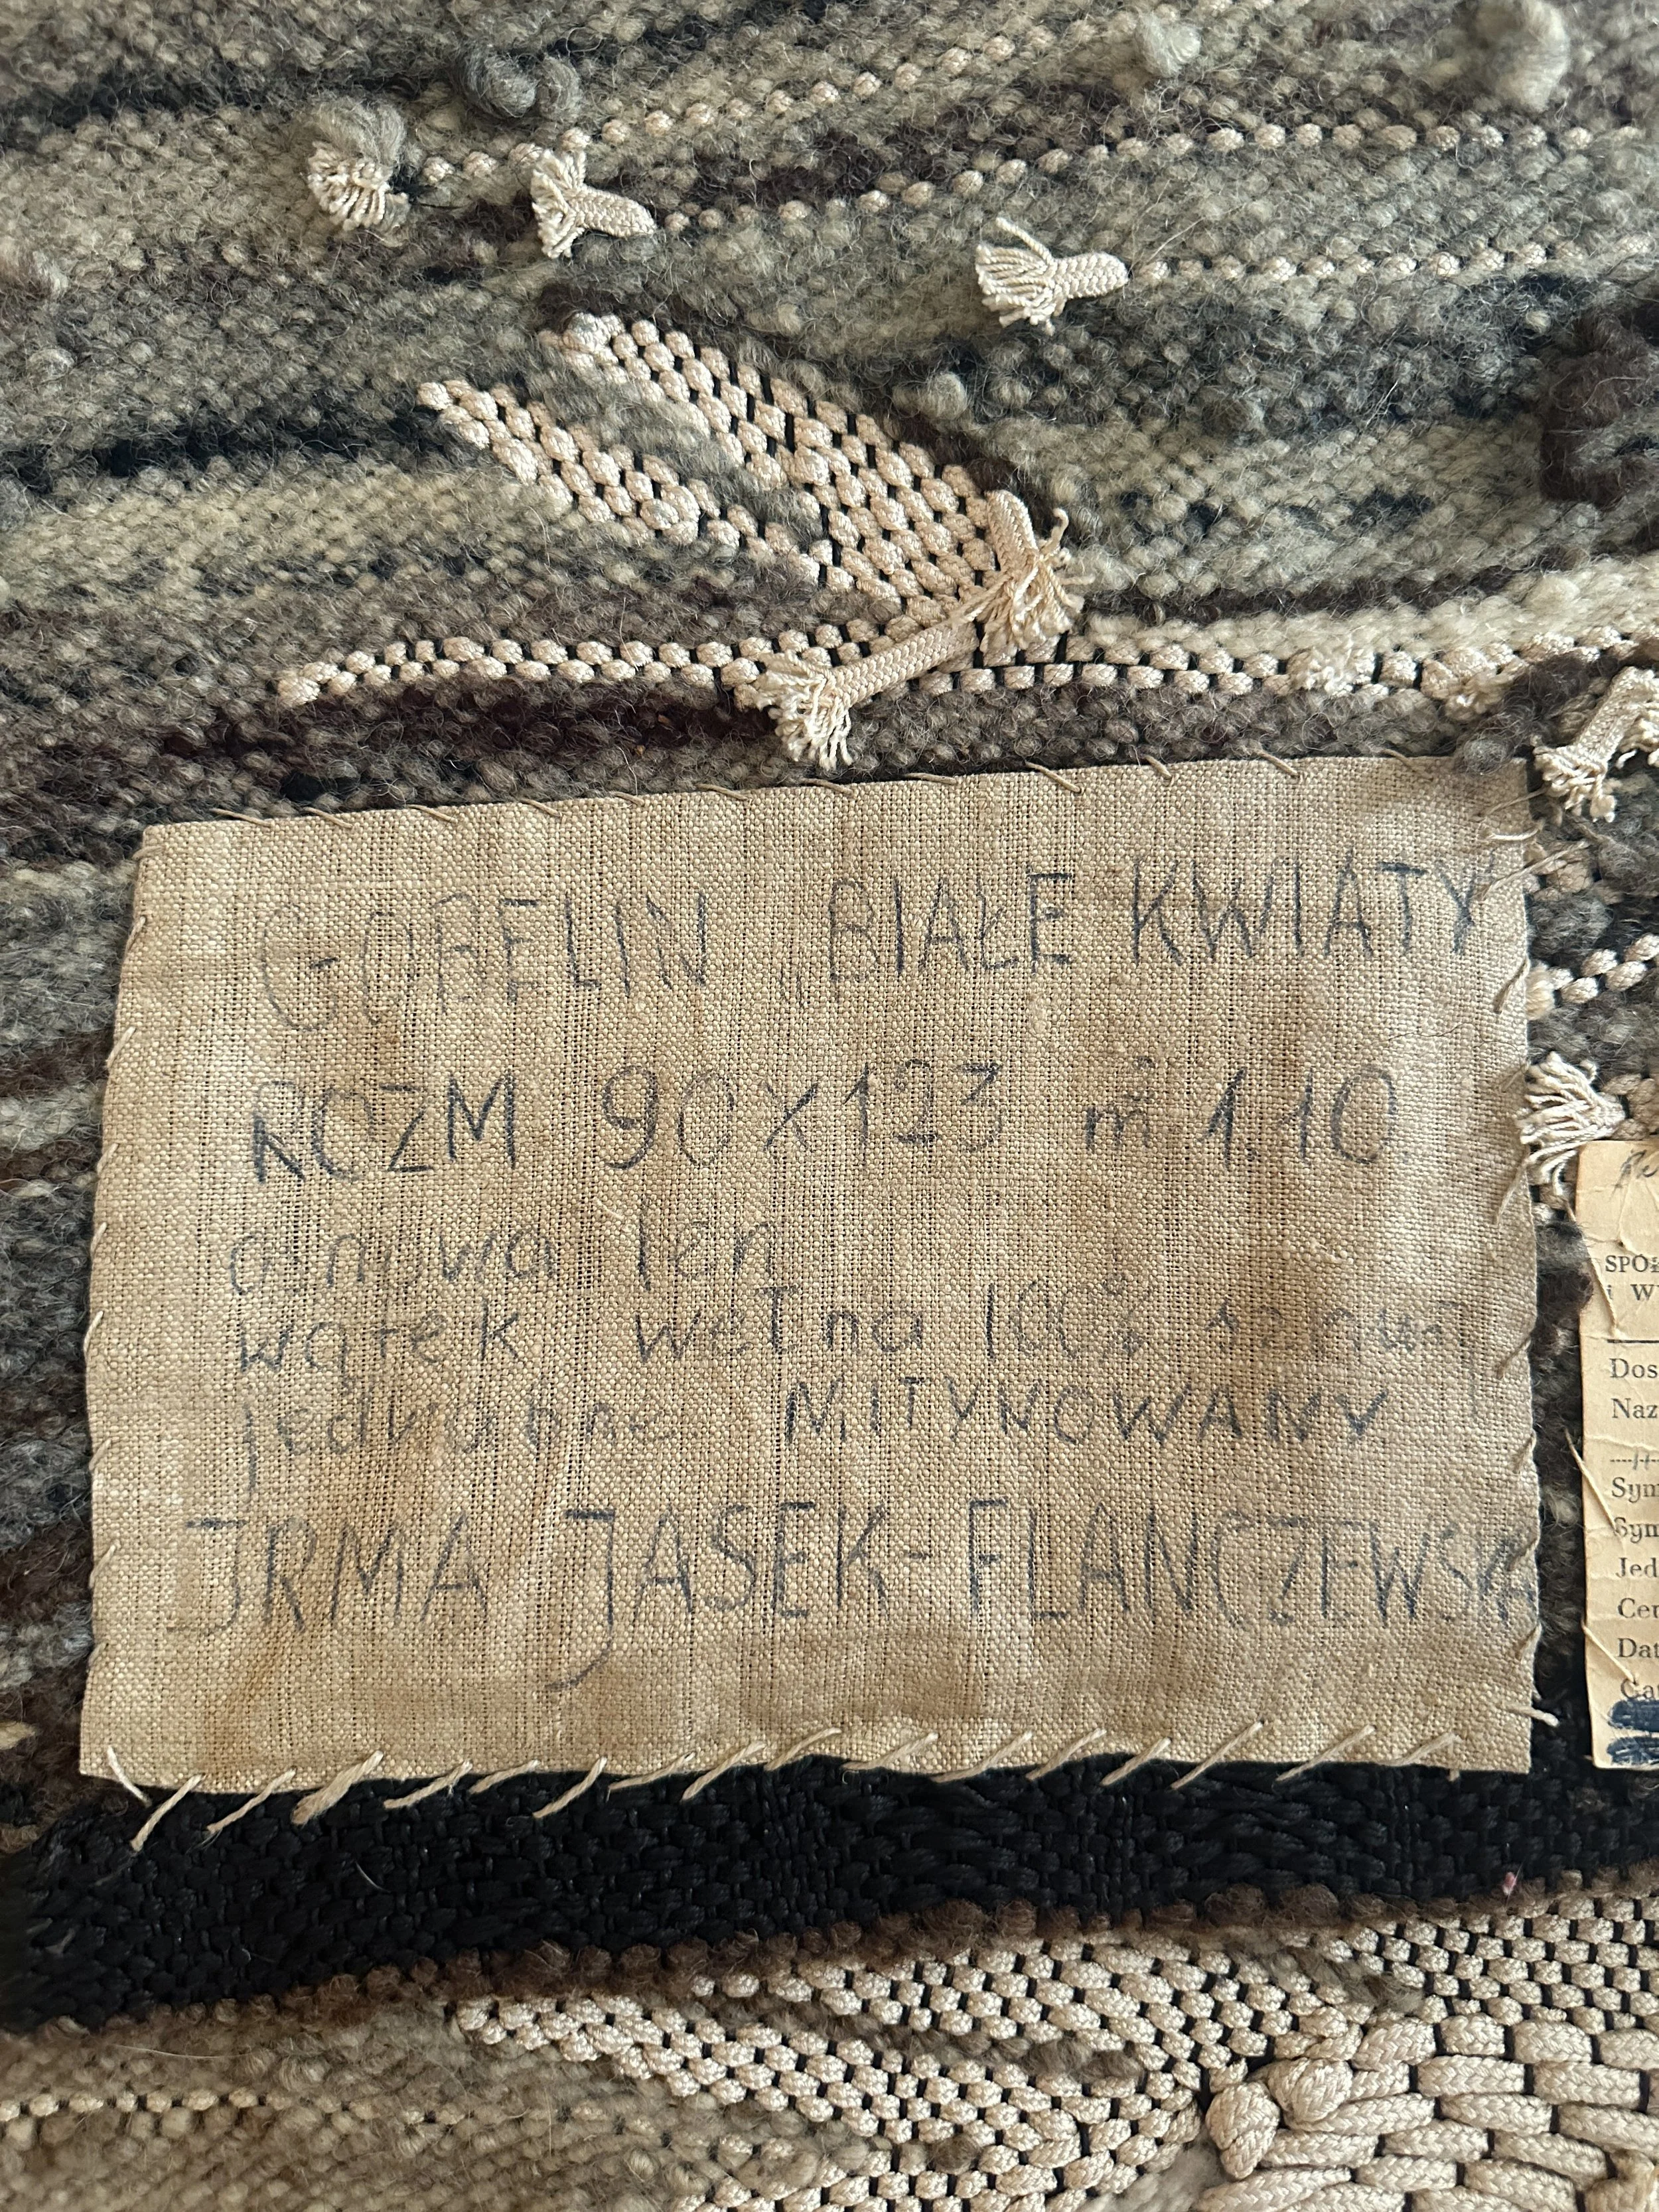 GOBELIN „BIAŁE KWIATY
ROZM 90x123 m² 1.10
osnowa len
wątek wełna 100% sznur
jedwabne MITYNOWANY
JRMA JASEK-FLANCZEWSKA
SPOŁ
i W
Dos
Naz
Sym
Sym
Jed
Cen
Dat
Ga